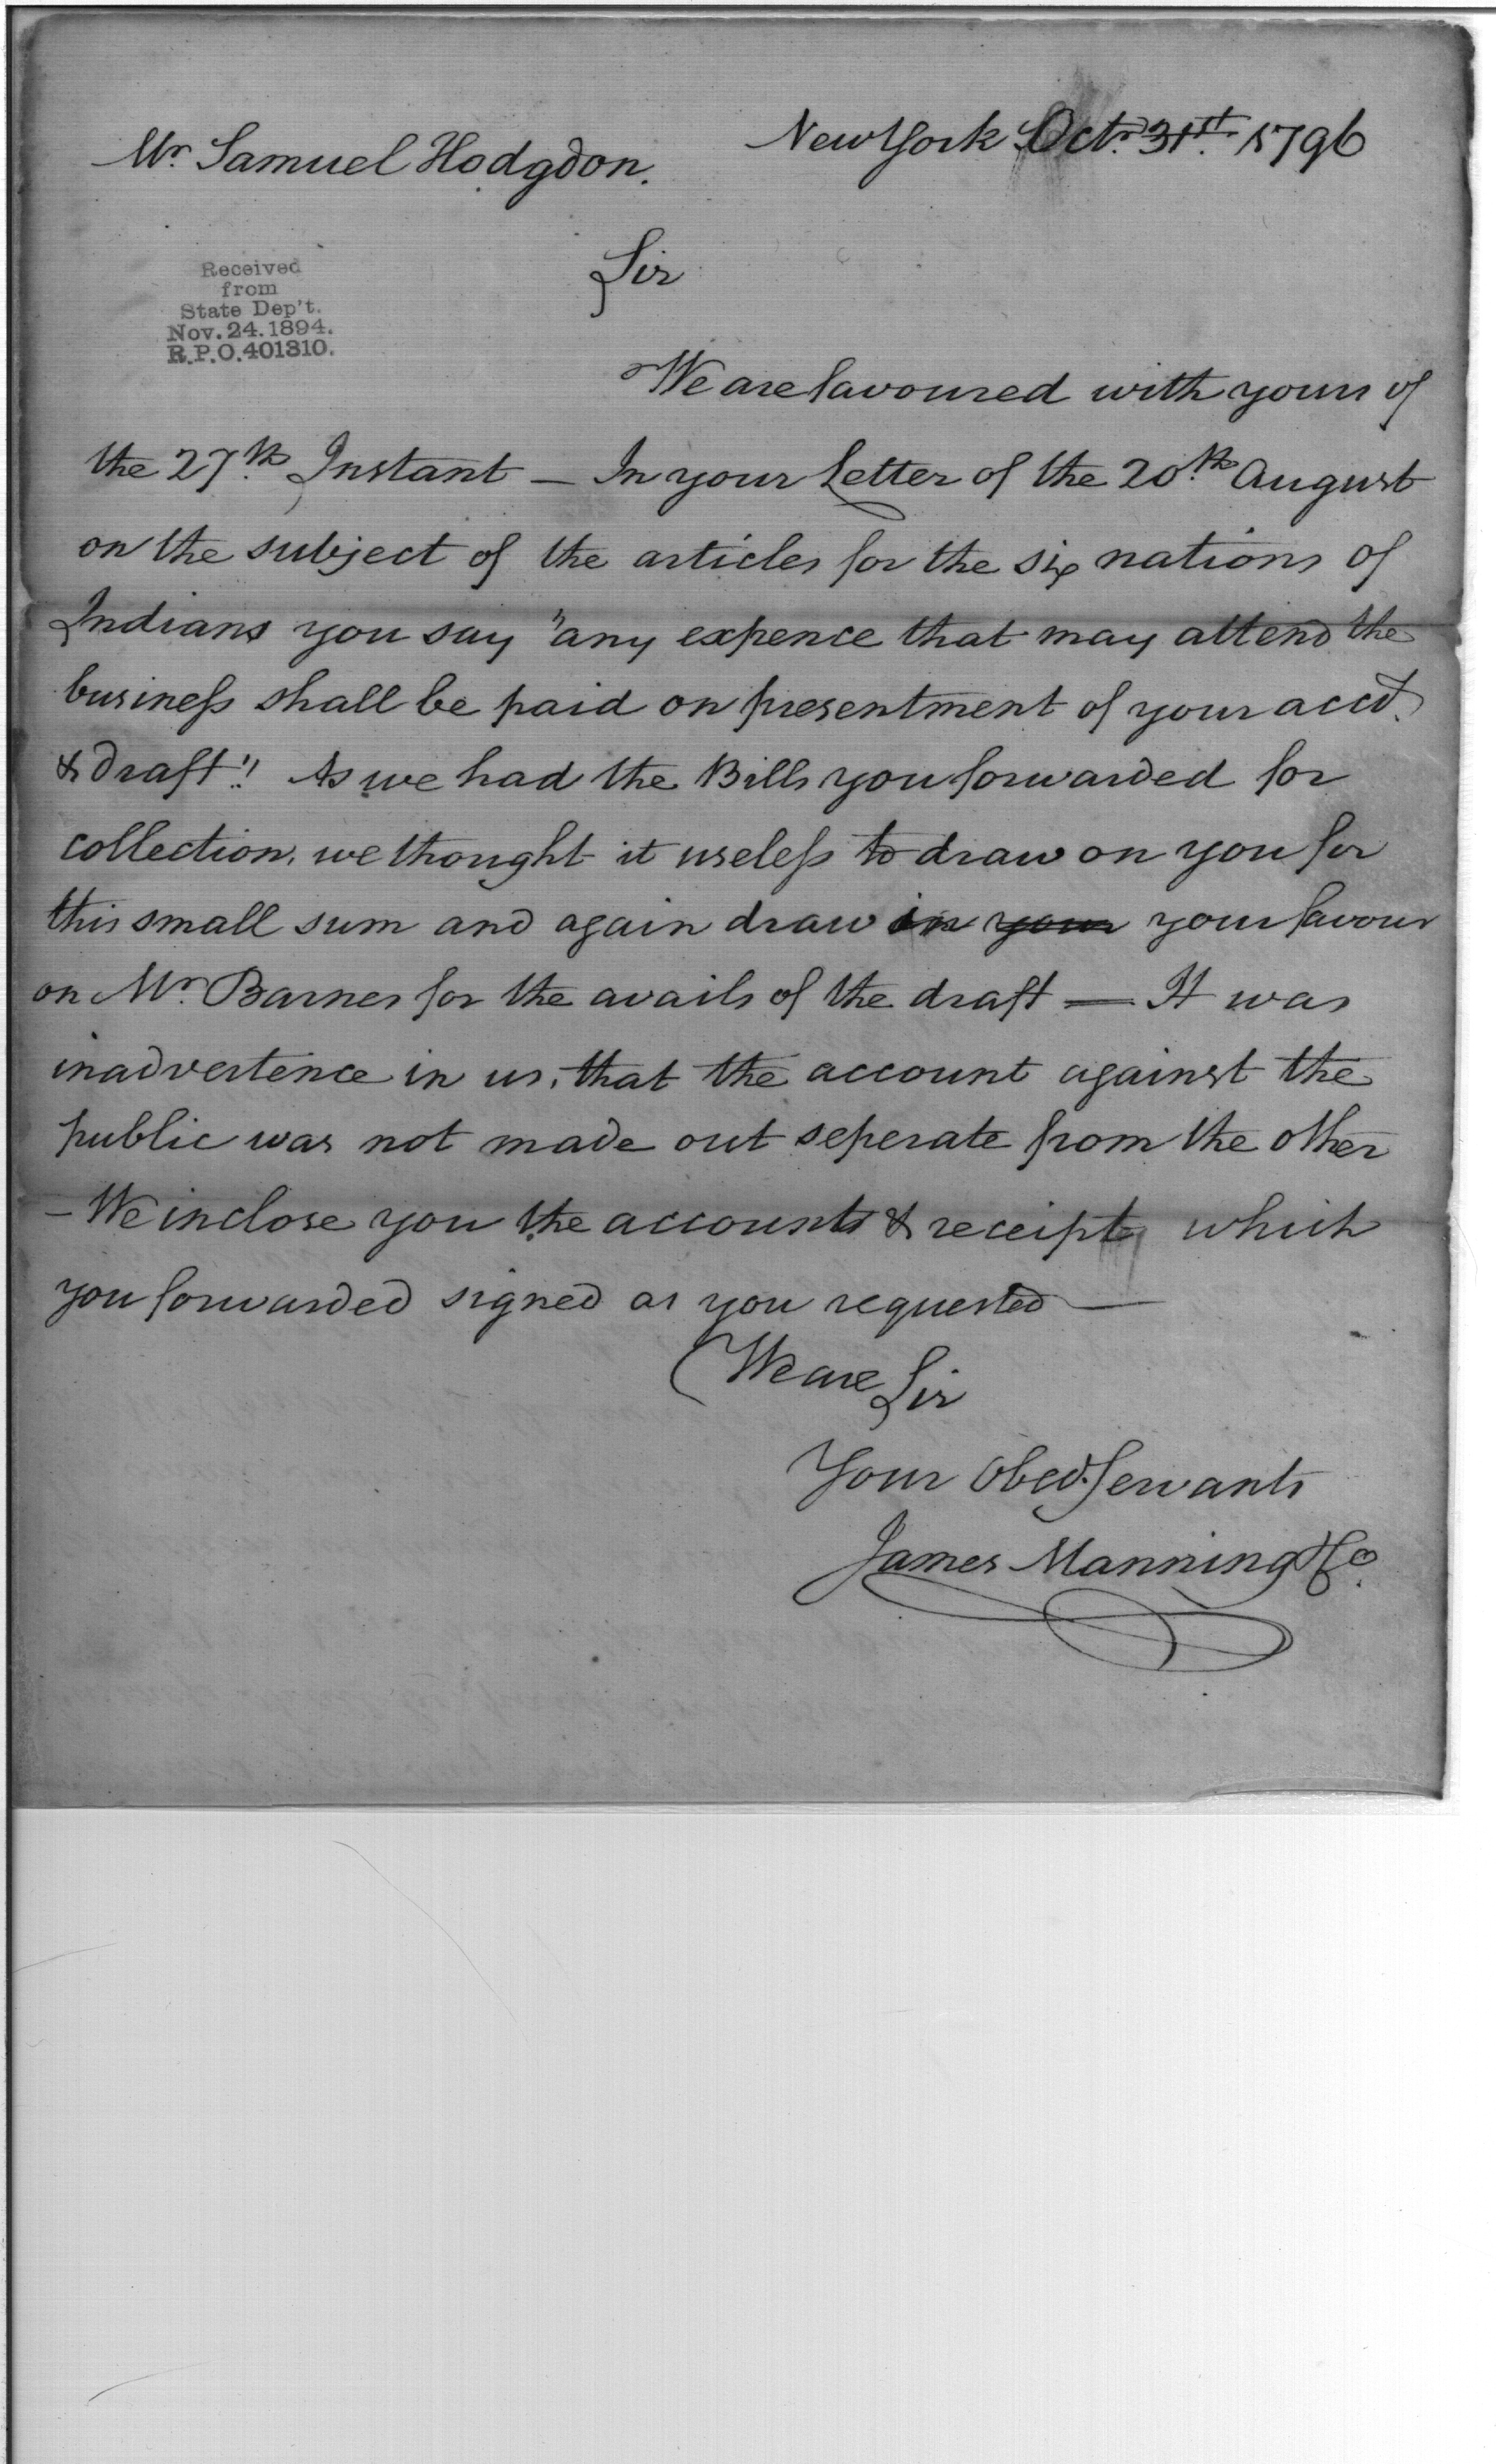 New York Octr. 31st. 1796
Mr. Samuel Hodgdon.
Sir
Received
from
State Dep't.
Nov. 24. 1894.
R.P.O. 401310.
We are favoured with yours of
the 27th. Instant — In your Letter of the 20th. August
on the subject of the articles for the six nations of
Indians you say "any expence that may attend the
business shall be paid on presentment of your acct.
& draft". As we had the Bills you forwarded for
collection, we thought it useless to draw on you for
this small sum and again draw in your your favour
on Mr. Barnes for the avails of the draft — It was
inadvertence in us, that the account against the
public was not made out seperate from the other
- We inclose you the accounts & receipt which
you forwarded signed as you requested —
We are Sir
Your Obed. Servants
James Manning & Co.